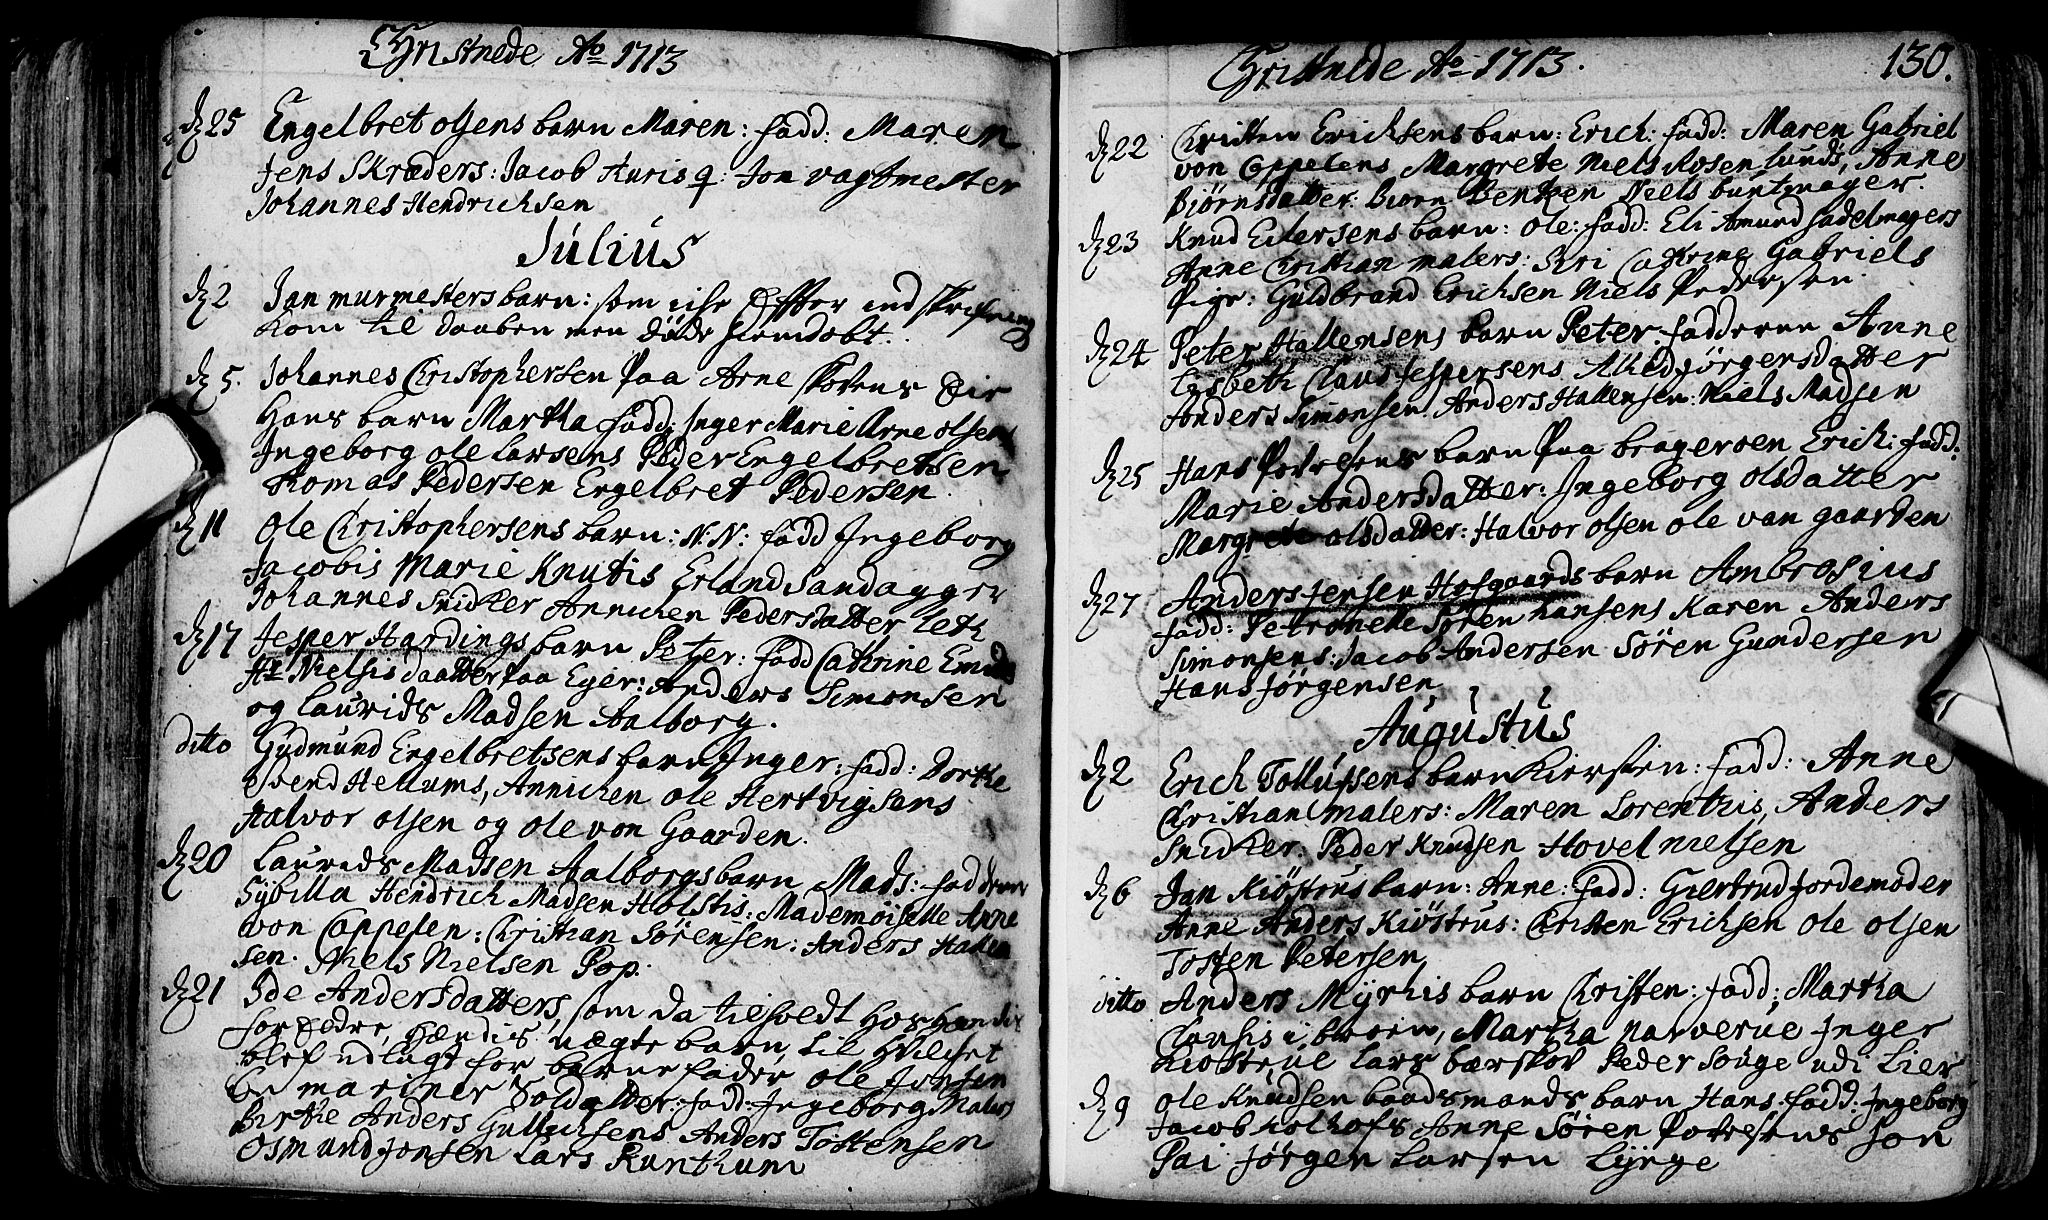 Christnede Ao 1713
d 25 Engelbret olsens barn Maren: fadd: Maren
Jens Skræders: Jacob Aurisq: Jon vagtmester
Johannes Hendrichsen
Julius
d 2 Jan murmesters barn: som icke Effter indskrifning
kom til daaben men döde hiemdöbt.
d 5. Johannes Christophersen paa Arne
Hans barn Martha fadd: Inger Marie Arne olsens
Ingeborg ole Larsens Peder Engelbretsen
Thomas Pedersen Engelbret Pedersen
d 11 Ole Christophersens barn: N:N: fadd Ingeborg
Jacobis Marie Knutis Erland Sandagger
Johannes Snidker Annichen Pedersdatter leth
d 17 Jesper Hardings barn Peter: fadd Cathrine
Hr Nielsis daatter paa Eger: Anders Simonsen
og Laurids Madsen Aalborg.
ditto Gudmund Engelbretsens barn Inger: fadd: Dorthe
Svend Hellums, Annichen ole Hertvigsens
Halvor olsen og ole von Gaarden.
d 20 Laurids Madsen Aalborgs barn Mads: faddrene
Sybilla Hendrich Madsen Holstis: Mademoiselle Anne
von Cappelen: Christian Sörensen: Anders Hallen
sen. Niels Nielsen Pop.
d 21 Ide Andersdatters, som da tilholdt hos
forældre, Hændis uægte barn, til hvilchet
blef udlagt for barnefader ole Jonsen
En mariner Soldatter: fadd: Ingeborg Malers
Birthe Anders Gullichsens Anders Tostensen
Osmund Jonsen Lars Runthum
Christnede Ao 1713. 130.
d 22 Christen Erichsens barn: Erich: fadd: Maren Gabriel
von Cappelens Margrete Niels Rosenlunds, Anne
Biörnsdatter: Biörn Bentsen Niels buntmager.
d 23 Knud Eilersens barn: Ole: fadd: Eli Amund sadelmagers
Anne Christian malers: Siri Cathrine Gabriels
Pige: Guldbrand Erichsen Niels Pedersen
d 24 Peter Hallensens barn Peter: fadderne Anne
Lisbeth Claus Jespersens Alhed Jörgensdatter
Anders Simonsen Anders Hallensen: Niels Madsen
d 25 Hans Povelsens barn paa bragernen Erich: fadd:
Marie Andersdatter: Ingeborg olsdatter
Margrete olsdatter: Halvor olsen ole van gaarden
d 27 Anders Jensen Hofgaards barn Ambrosius
fadd: Petronelle Sören Hansens Karen Anders
Simonsens: Jacob Andersen Sören Gundersen
Hans Jörgensen
Augustus
d 2 Erich Tollufsens barn Kiersten: fadd: Anne
Christian malers: Maren Lorenthis, Anders
Snidker: Peder Knudsen Hovel nielsen
d 6 Jan Kiöstrus barn: Anne: fadd: Giertrud Jordemoder
Anne Anders Kiöstrus: Christen Erichsen ole olsen
Tosten Petersen
ditto Anders Myrhis barn Christen: fadd: Martha
Clausis i byen, Martha Narverue Inger
Kiostrue Lars bærskov Peder Souge udi Lier
d 9 Ole Knudsen baadsmands barn Hans: fadd: Ingeborg
Jacob Kolhofs Anne Sören Povelsens Jon
Pai Jörgen Larsen Lynge